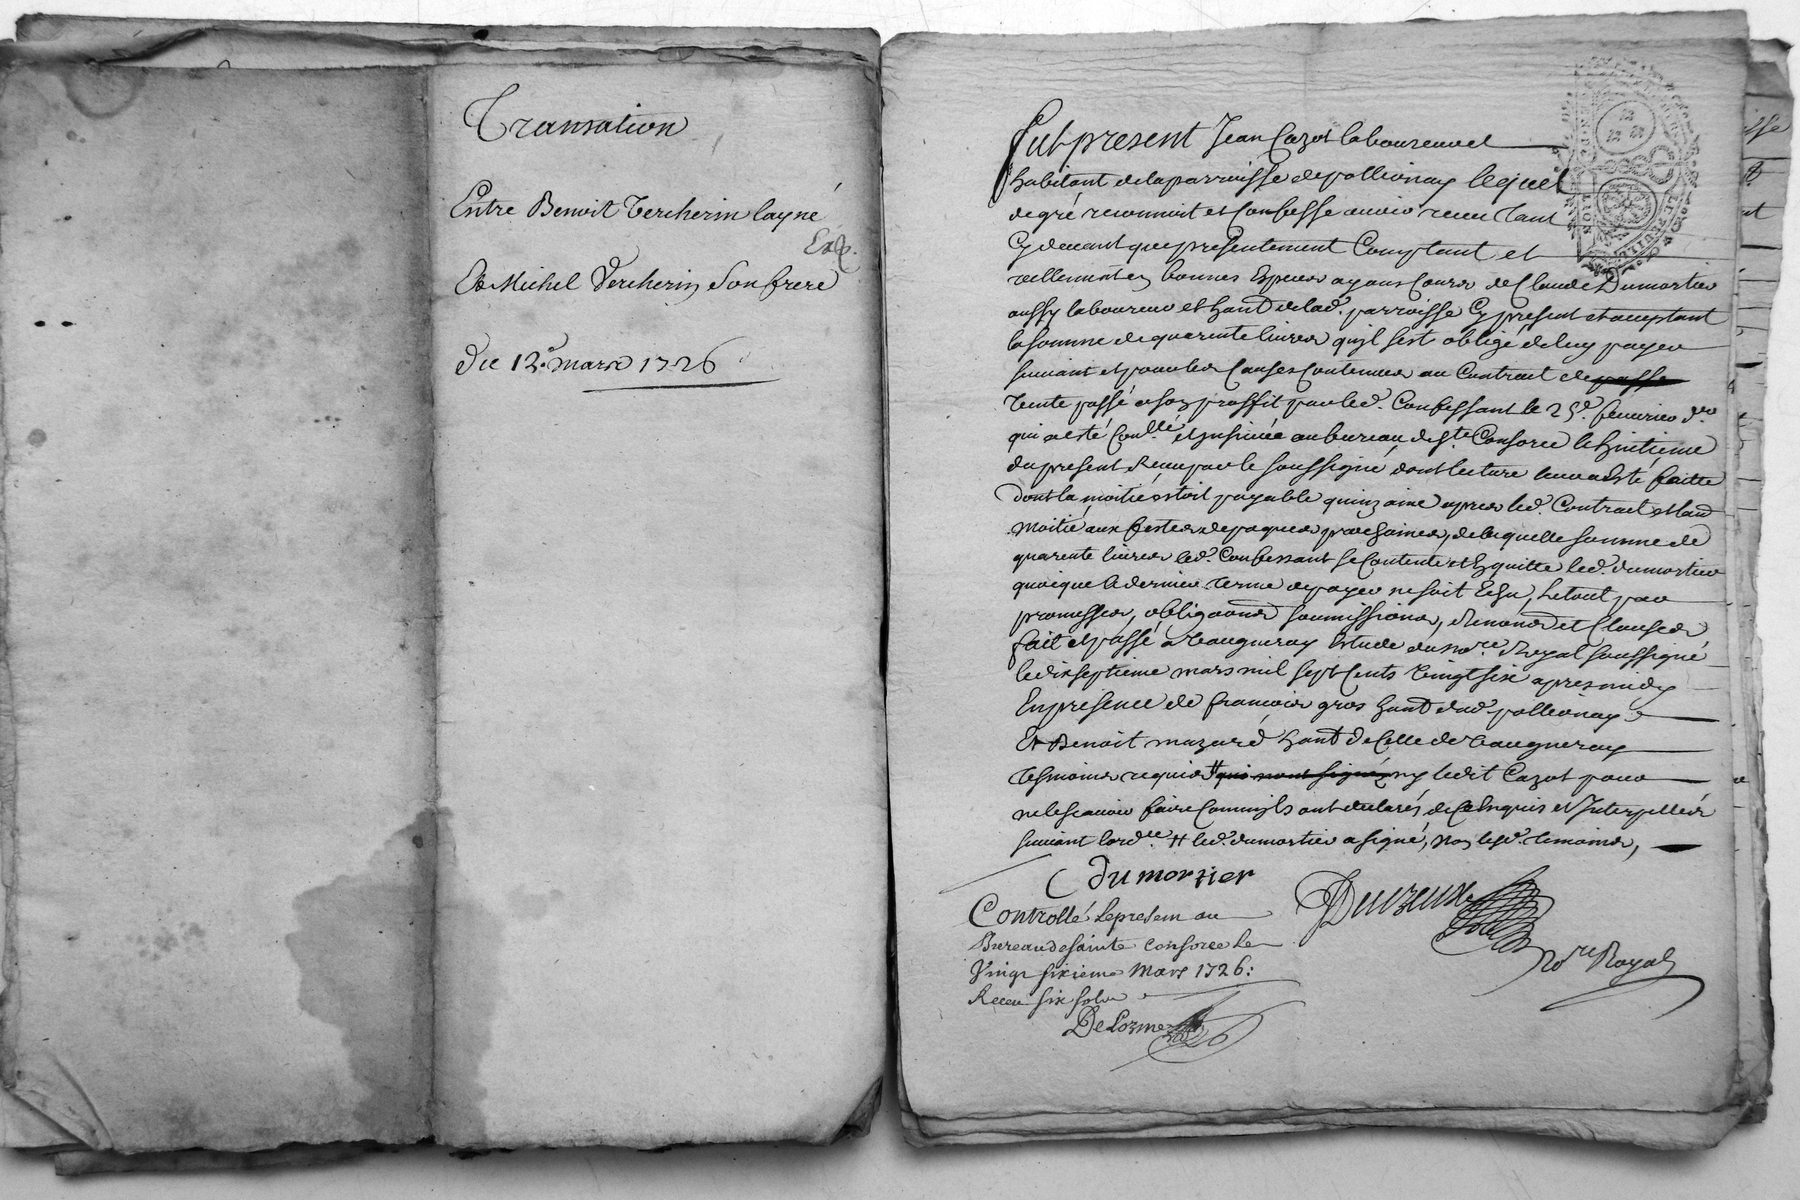 Transation
Entre Benoit Vercherin layné
Exp.
Et Michel Vercherin son frere
du 12e. mars 1726
Fut present Jean Cazot laboureur et
habitant de la parroisse de pollionay lequel
de gré reconnoit et Confesse avoir receu tant
Cy devant que presentement Comptant et
reellement en bonnes Especes ayans Cours de Claude Dumortier
aussy laboureur et hant de lad. parroisse Cy present et acceptant
la somme de quarente livres qu'il s'est obligé de luy payer
suivant et pour les Causes Contenues au Contract de passe
vente passé a son proffit par led. Confessant le 25e. fevrier der
qui a esté Conllé et Insinué au bureau de Ste Consorce le huitieme
du present Receu par le soussigné, dont lecture leur a Esté faitte
dont la moitié estoit payable quinzaine apres led. Contract et lau
moitié aux festes de paques prochaines, de laquelle somme de
quarente livres led. Confessant se Contente et En quitte led. dumortier
quoique le dernier terme de payer ne soit Echu, Le tout par
promesses, obligaons soumissions, Renons et Clauses
fait et passé a Vaugneray Estude du nore Royal soussigné
le dix septieme mars mil sept Cents vingt six apres midy
En presence de francois gros hant dud pollionay
Et Benoit mazard hant de Celle de Vaugneray
tesmoins requis # qui n'ont signé ny ledit Cazot pour
ne le scavoir faire Comm'ils ont declarés de Ce Enquis et Interpellés
suivant lordce # led. dumortier a signé, non lesd. temoins,
Dumortier
Controllé le present au
Bureau de sainte Consorce le
Vingt sixieme Mars 1726:
Receu six sols
DeLorme
Nore Royal